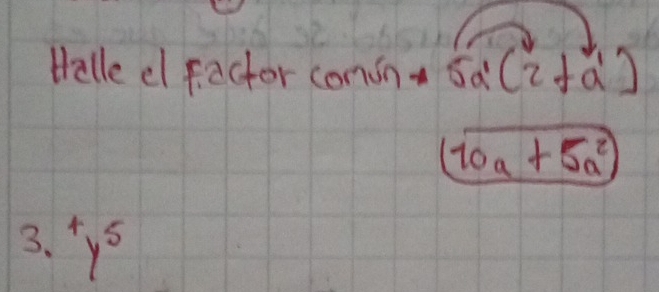 Halle el Factor común → 5a¹(2+a¹)
10a + 5a²
3. +y⁵